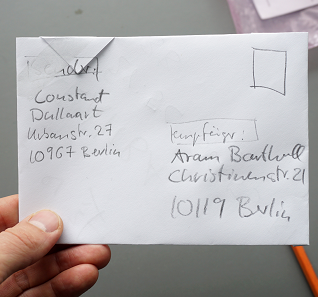 Constant
Dullaart
Urbanstr. 27
10967 Berlin
Empfänger:
Aram Bartholl
Christinenstr. 21
10119 Berlin